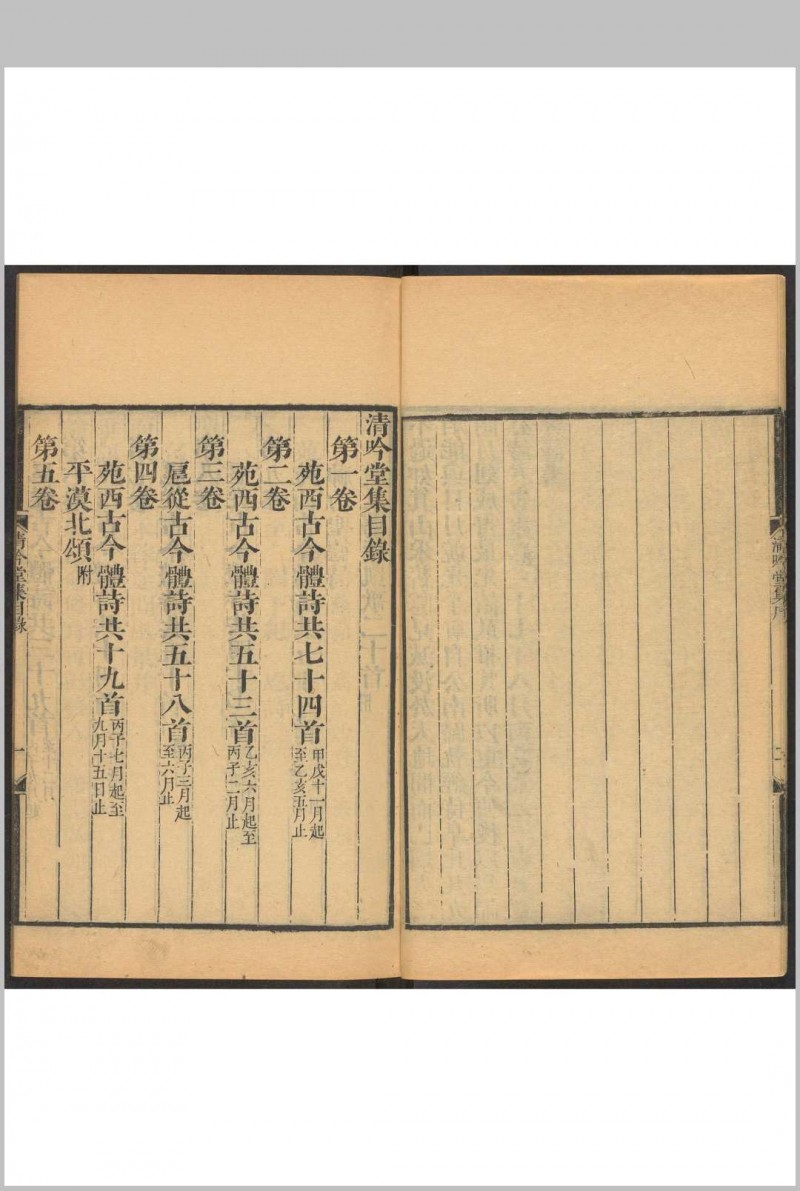 清吟堂集序
清吟堂集目錄
第一卷
苑西古今體詩共七十四首甲戌十一月起
至乙亥五月止
第二卷
苑西古今體詩共五十三首乙亥六月起至
丙子二月止
第三卷
扈從古今體詩共五十八首丙子三月起
至六月止
第四卷
苑西古今體詩共十九首丙子七月起至
九月十五日止
平漠北頌附
第五卷
清吟堂集目錄
一